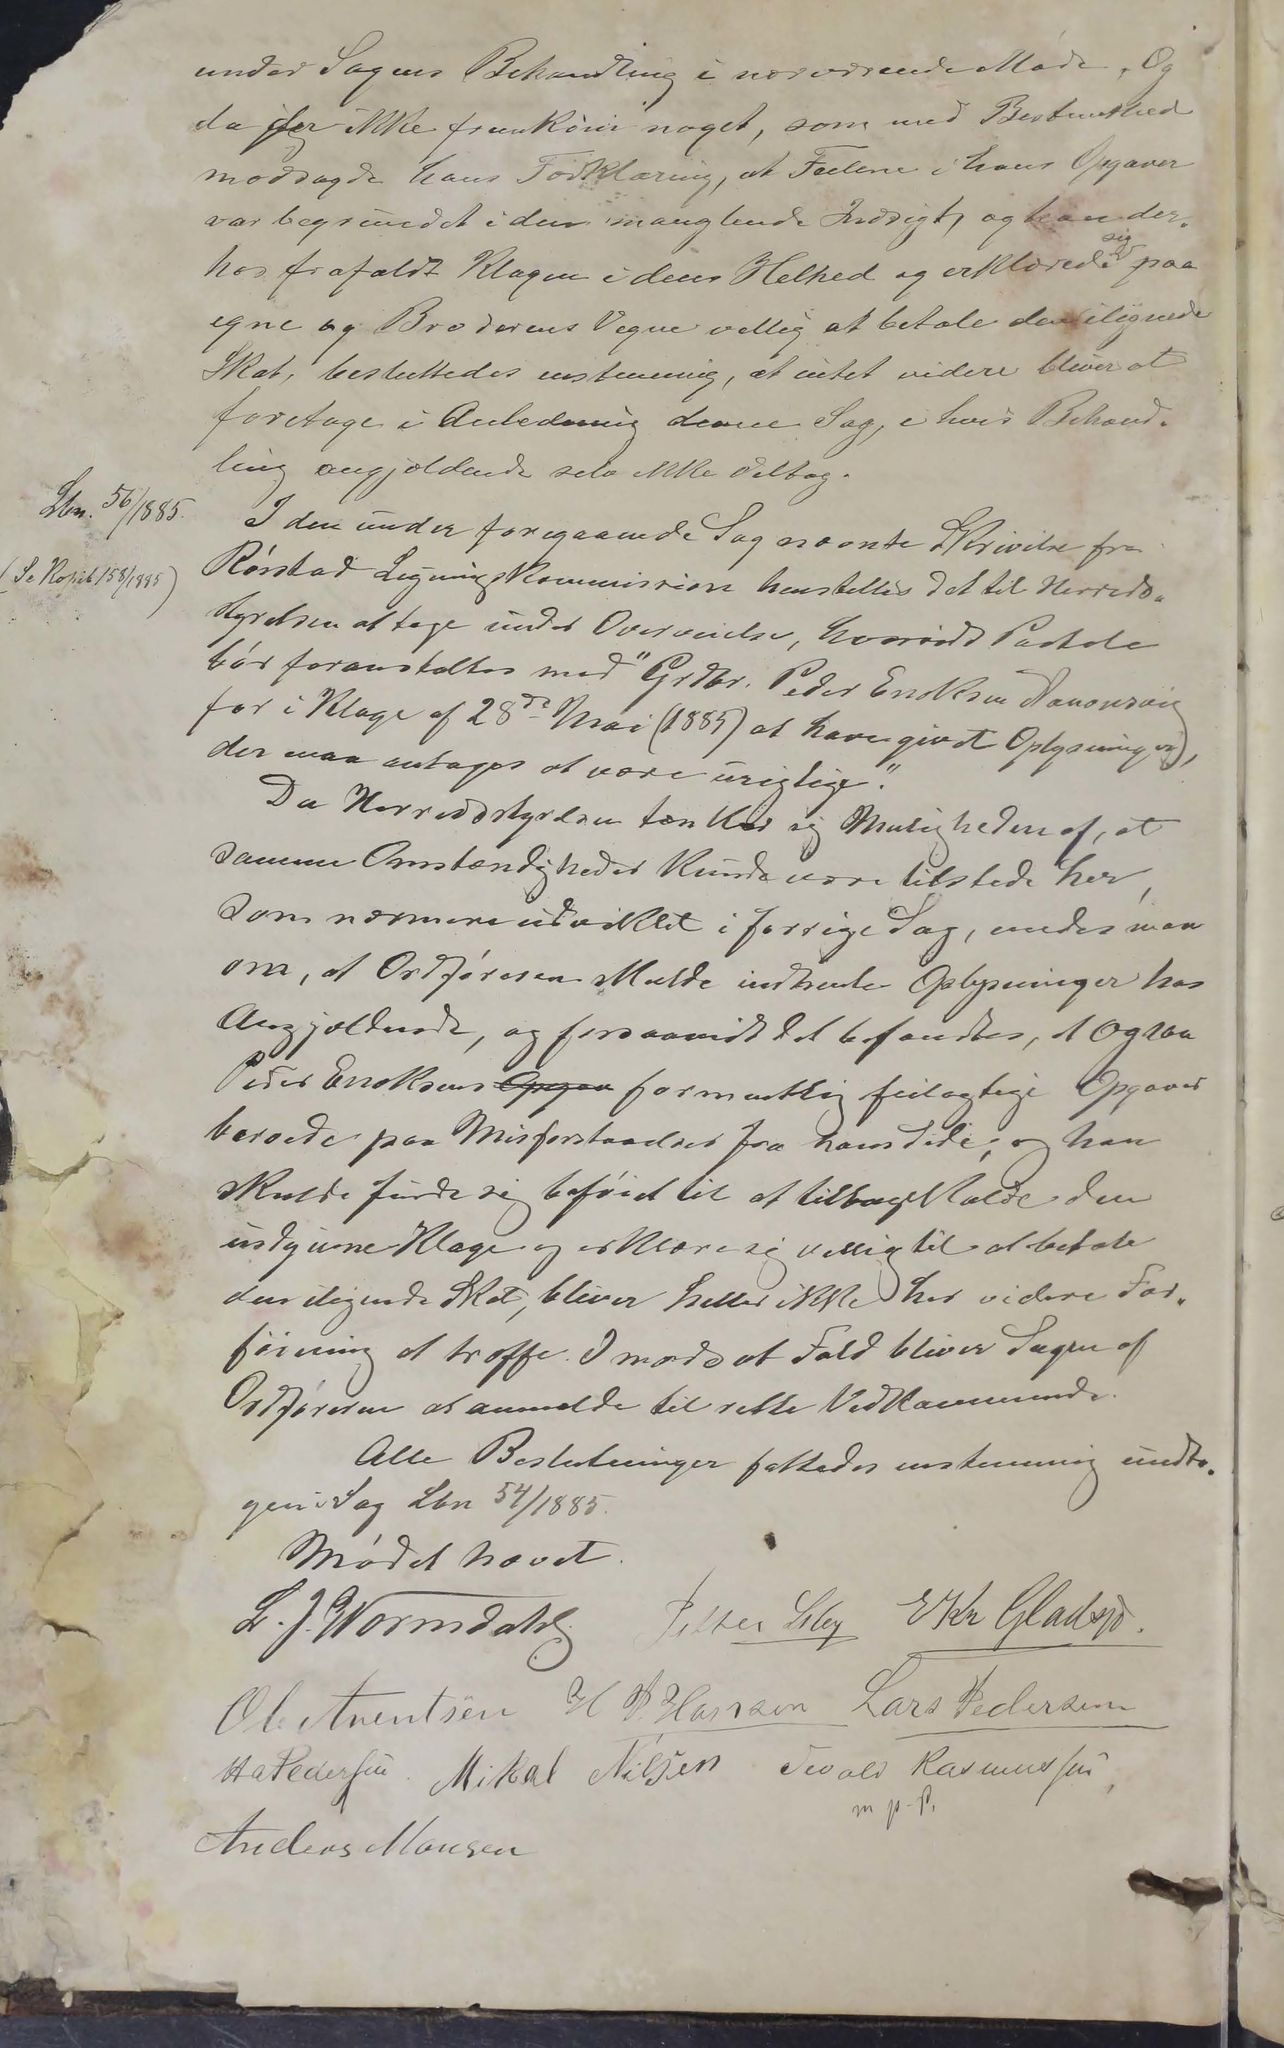 under Sagens Behandling i nærværende Møde. Og
da der ikke fremkom noget, som med Bestemthed
modsagde hans Forklaring, at Feilene i hans Opgaver
var begrundet i den manglende Indsigt, og han der-
hos frafaldt Klagen i dens Helhed og erklærede sig paa
egne og Broderens Vegne villig at betale den ilignede
Skat, besluttedes enstemmig, at intet videre bliver at
foretage i Anledning denne Sag, i hvis Behand-
ling angjældende selv ikke deltog.
Lbn. 56/1885.
(Se Kopib 158/1885)
I den under foregaaende Sag nævnte Skrivelse fra
Rørstad Ligningskommission henstilles det til Herreds-
styrelsen at tage under Overveielse, hvorvidt Paatale
bør foranstaltes mod "Grdbr. Peder Enoksen
for i Klage af 28de Mai (1885) at have givet Oplysninger,
der maa antages at være urigtige".
Da Herredsstyrelsen tænker sig Muligheden af, at
samme Omstændigheder kunde være tilstede her,
som nærmere udviklet i forrige Sag, enedes man
om, at Ordføreren skulde indhente Oplysninger hos
Angjældende, og forsaavidt det befandtes, at ogsaa
Peder Enoksens Opgav formentlig feilagtige Opgaver
beroede paa Misforstaaelser fra hans Side, og han
skulde finde sig beføiet til at tilbagekalde den
indgivne Klage og erklære sig villig til at betale
den ilignede Skat, bliver heller ikke her videre For-
føining at træffe. I modsat Fald bliver Sagen af
Ordføreren at anmelde til rette Vedkommende.
Alle Beslutninger fattedes enstemmig undta-
gen i Sag Lbn 54/1885.
Mødet hævet.
L. J. Wormdahl Petter Seby E Kr Gladsjø.
Ole Arentsen H P. Hanssen Lars Pedersen
Ha Pedersen. Mikal Nilsen Tevold Rasmussen
m p. P.
Anders Monsen